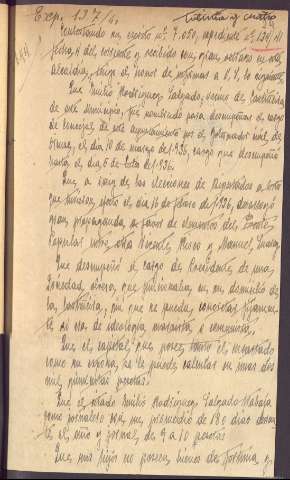 Exp. 137/40
treinta y cuatro
Contestando su escrito nº 7.050, expediente nº 137, de
fecha 4 del corriente y recibido con gran retraso en esta
Alcaldía, tengo el honor de informar a V.S. lo siguiente
Que Emilio Rodríguez Salgado, vecino de
de este municipio, fue nombrado para desempeñar el cargo
de concejal de este ayuntamiento por el Gobernador civil de
Orense, el día 10 de marzo de 1936, cargo que desempeñó
hasta el día 6 de de 1936.
Que a raíz de las elecciones de Diputados a Cortes
que tuvieron efecto el 16 de febrero de 1936, desarrolló
gran propaganda a favor de elementos del Frente
Popular entre otros Vicente Risco y Manuel
Que desempeñó el cargo de Presidente de una
Sociedad obrera, que funcionaba en su domicilio de
la sin que se pueda concretar fijamente
si era de ideología marxista o comunista.
Que el capital que posee tanto el encartado
como su esposa, se le puede calcular en unas dos
mil quinientas pesetas.
Que el citado Emilio Rodríguez Salgado trabaja
como jornalero un promedio de 180 días durante
el año y jornal de 9 a 10 pesetas.
Que sus hijos no poseen bienes de fortuna y